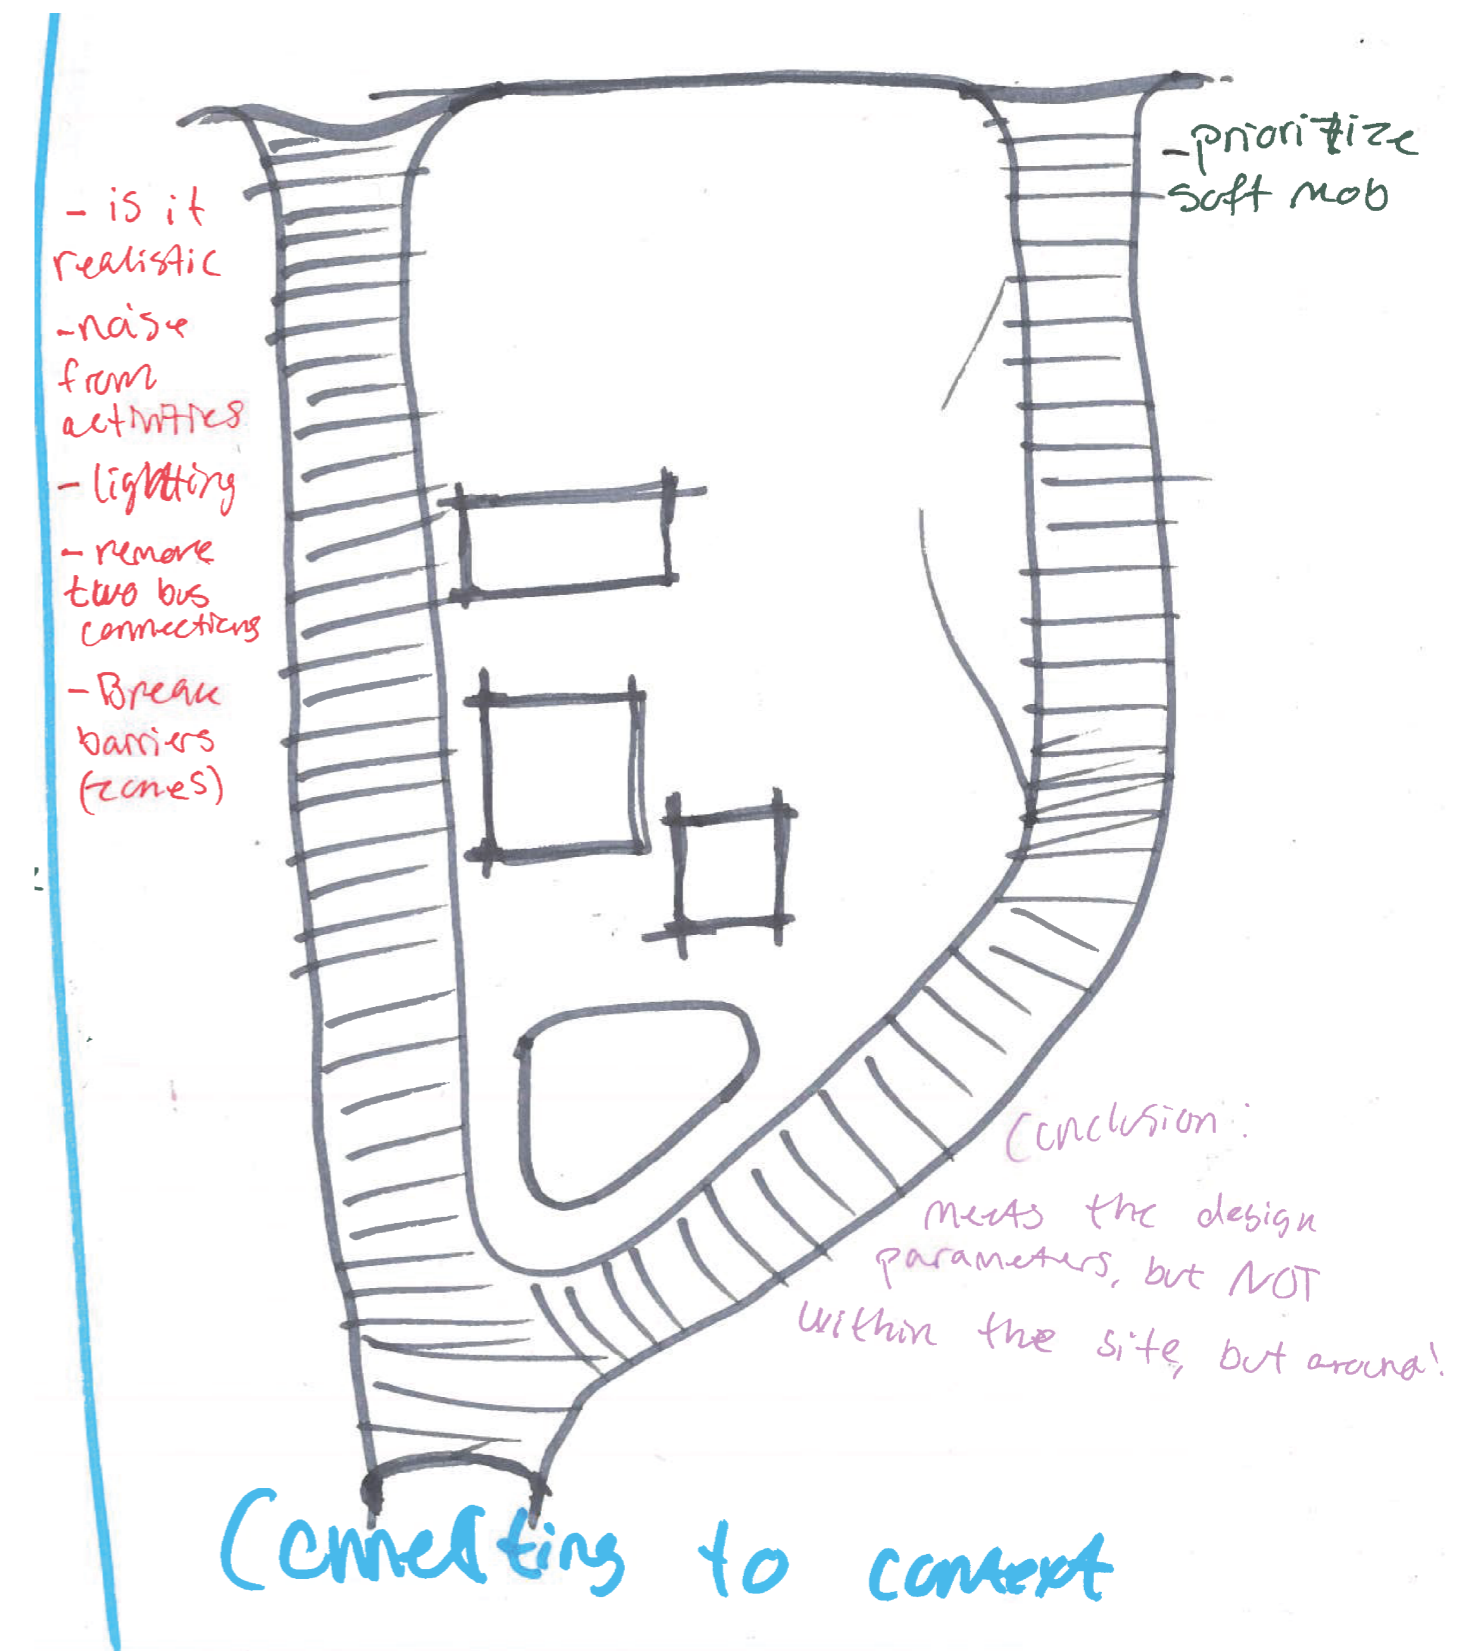 - is it
realistic
- noise
from
activities
- lighting
- remove
two bus
connections
- Break
barriers
(zones)
- prioritize
soft mob
Conclusion:
meets the design
parameters, but NOT
within the site, but around!
Connecting to context